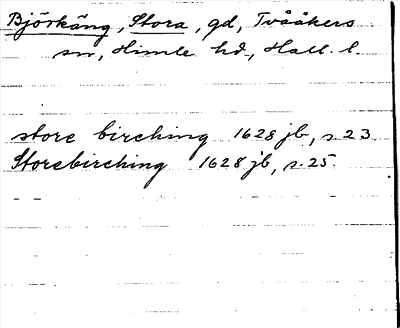 Björkäng, Stora, gd, Tvååkers
sn, Himle hd, Hall. l.
store birching 1628 jb, s. 23.
Storebirching 1628 jb, s. 25.